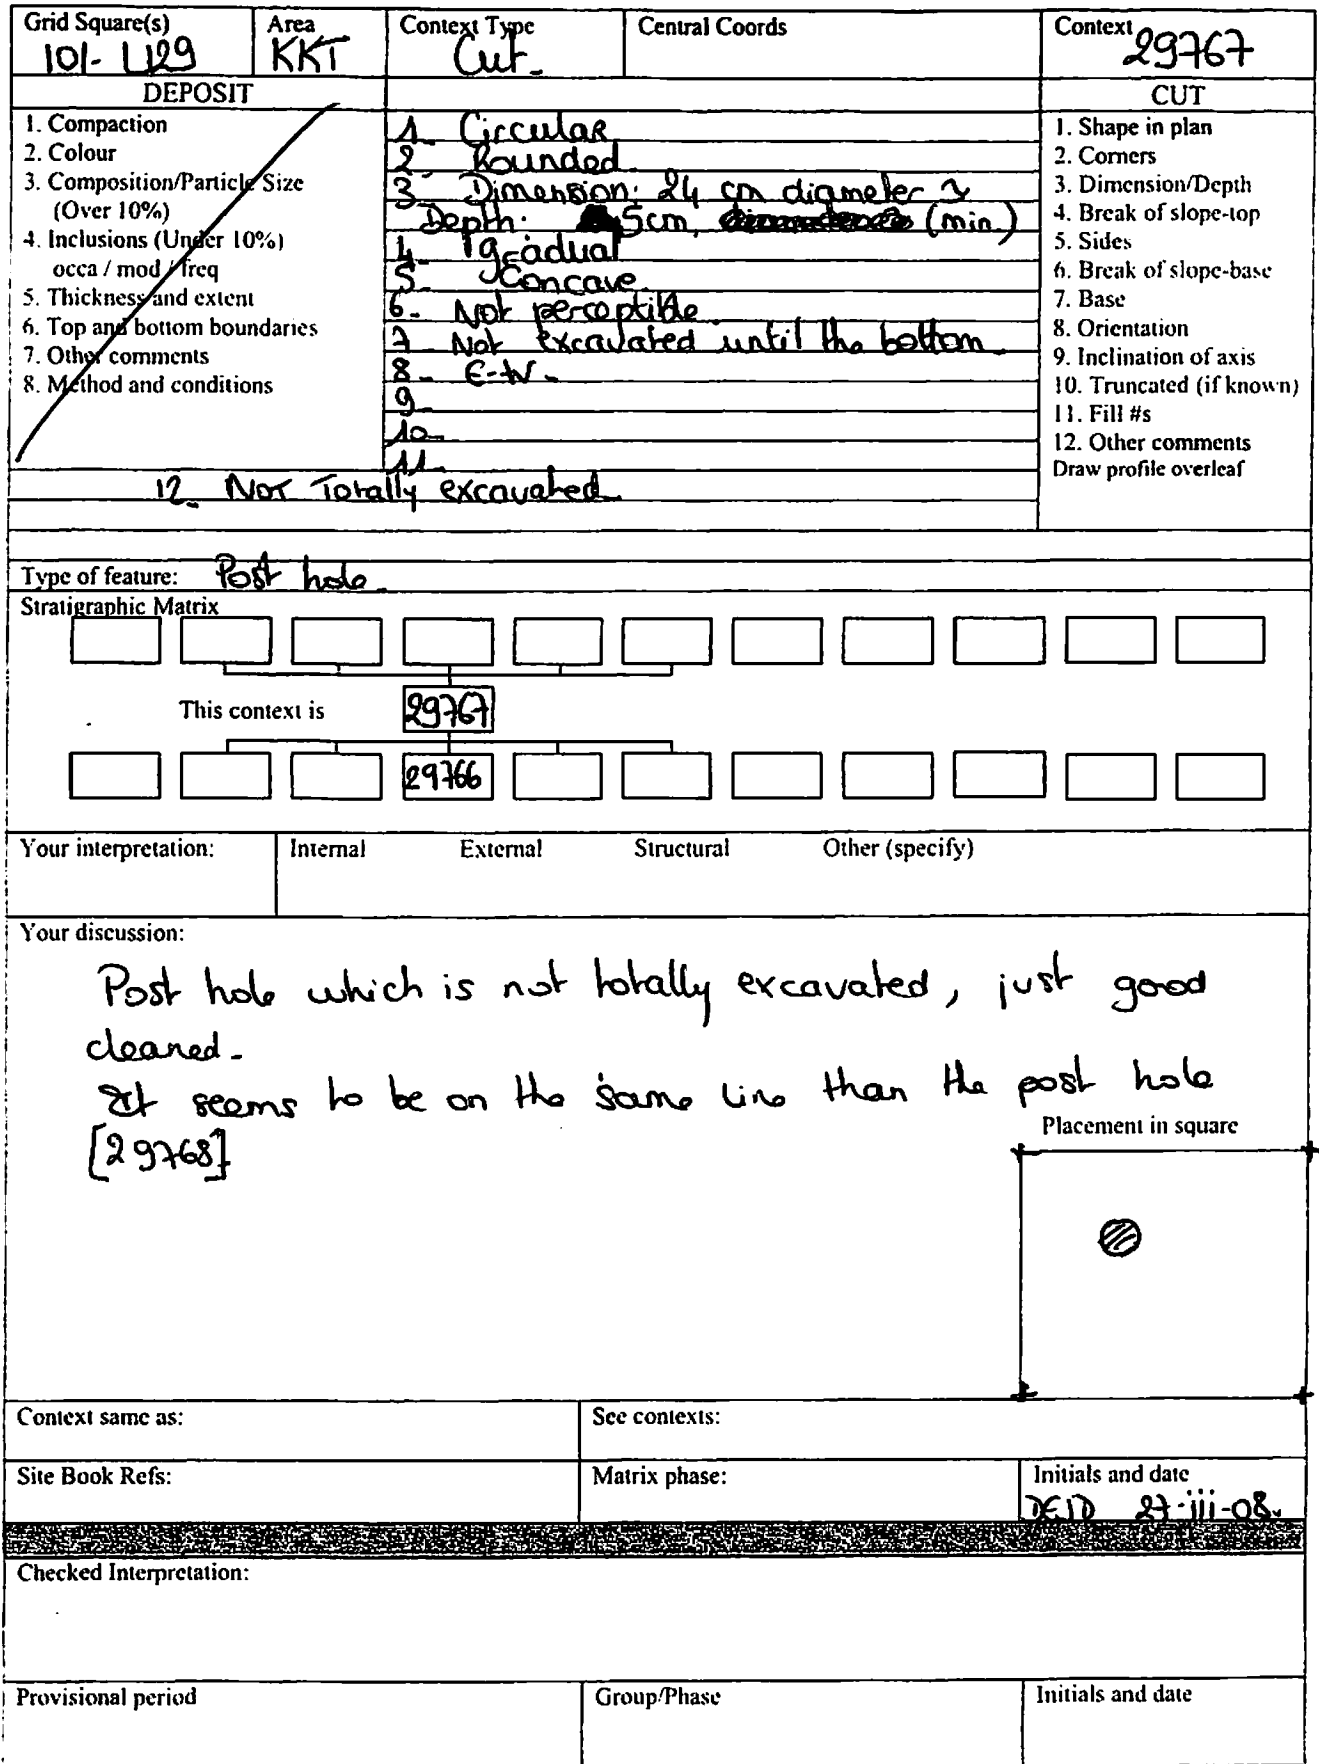 Grid Square(s) Area Context Type Central Coords Context
101- U29 KKT Cut. 29767
DEPOSIT CUT
1. Compaction
2. Colour
3. Composition/Particle Size
(Over 10%)
4. Inclusions (Under 10%)
occa / mod / freq
5. Thickness and extent
6. Top and bottom boundaries
7. Other comments
8. Method and conditions
1_ Circular
2_ Rounded.
3_ Dimension: 24 cm diameter ~
Depth: 5cm, (min.)
4_ gradual
5_ Concave.
6_ Not perceptible.
7_ Not excavated until the bottom.
8_ E-W.
9_
10_
11_
12_ Not Totally excavated.
1. Shape in plan
2. Corners
3. Dimension/Depth
4. Break of slope-top
5. Sides
6. Break of slope-base
7. Base
8. Orientation
9. Inclination of axis
10. Truncated (if known)
11. Fill #s
12. Other comments
Draw profile overleaf
Type of feature: Post hole.
Stratigraphic Matrix
This context is 29767
29766
Your interpretation: Internal External Structural Other (specify)
Your discussion:
Post hole which is not totally excavated, just good
cleaned.
It seems to be on the same line than the post hole
[29768]
Placement in square
Context same as: See contexts:
Site Book Refs: Matrix phase: Initials and date
27-iii-08.
Checked Interpretation:
Provisional period Group/Phase Initials and date